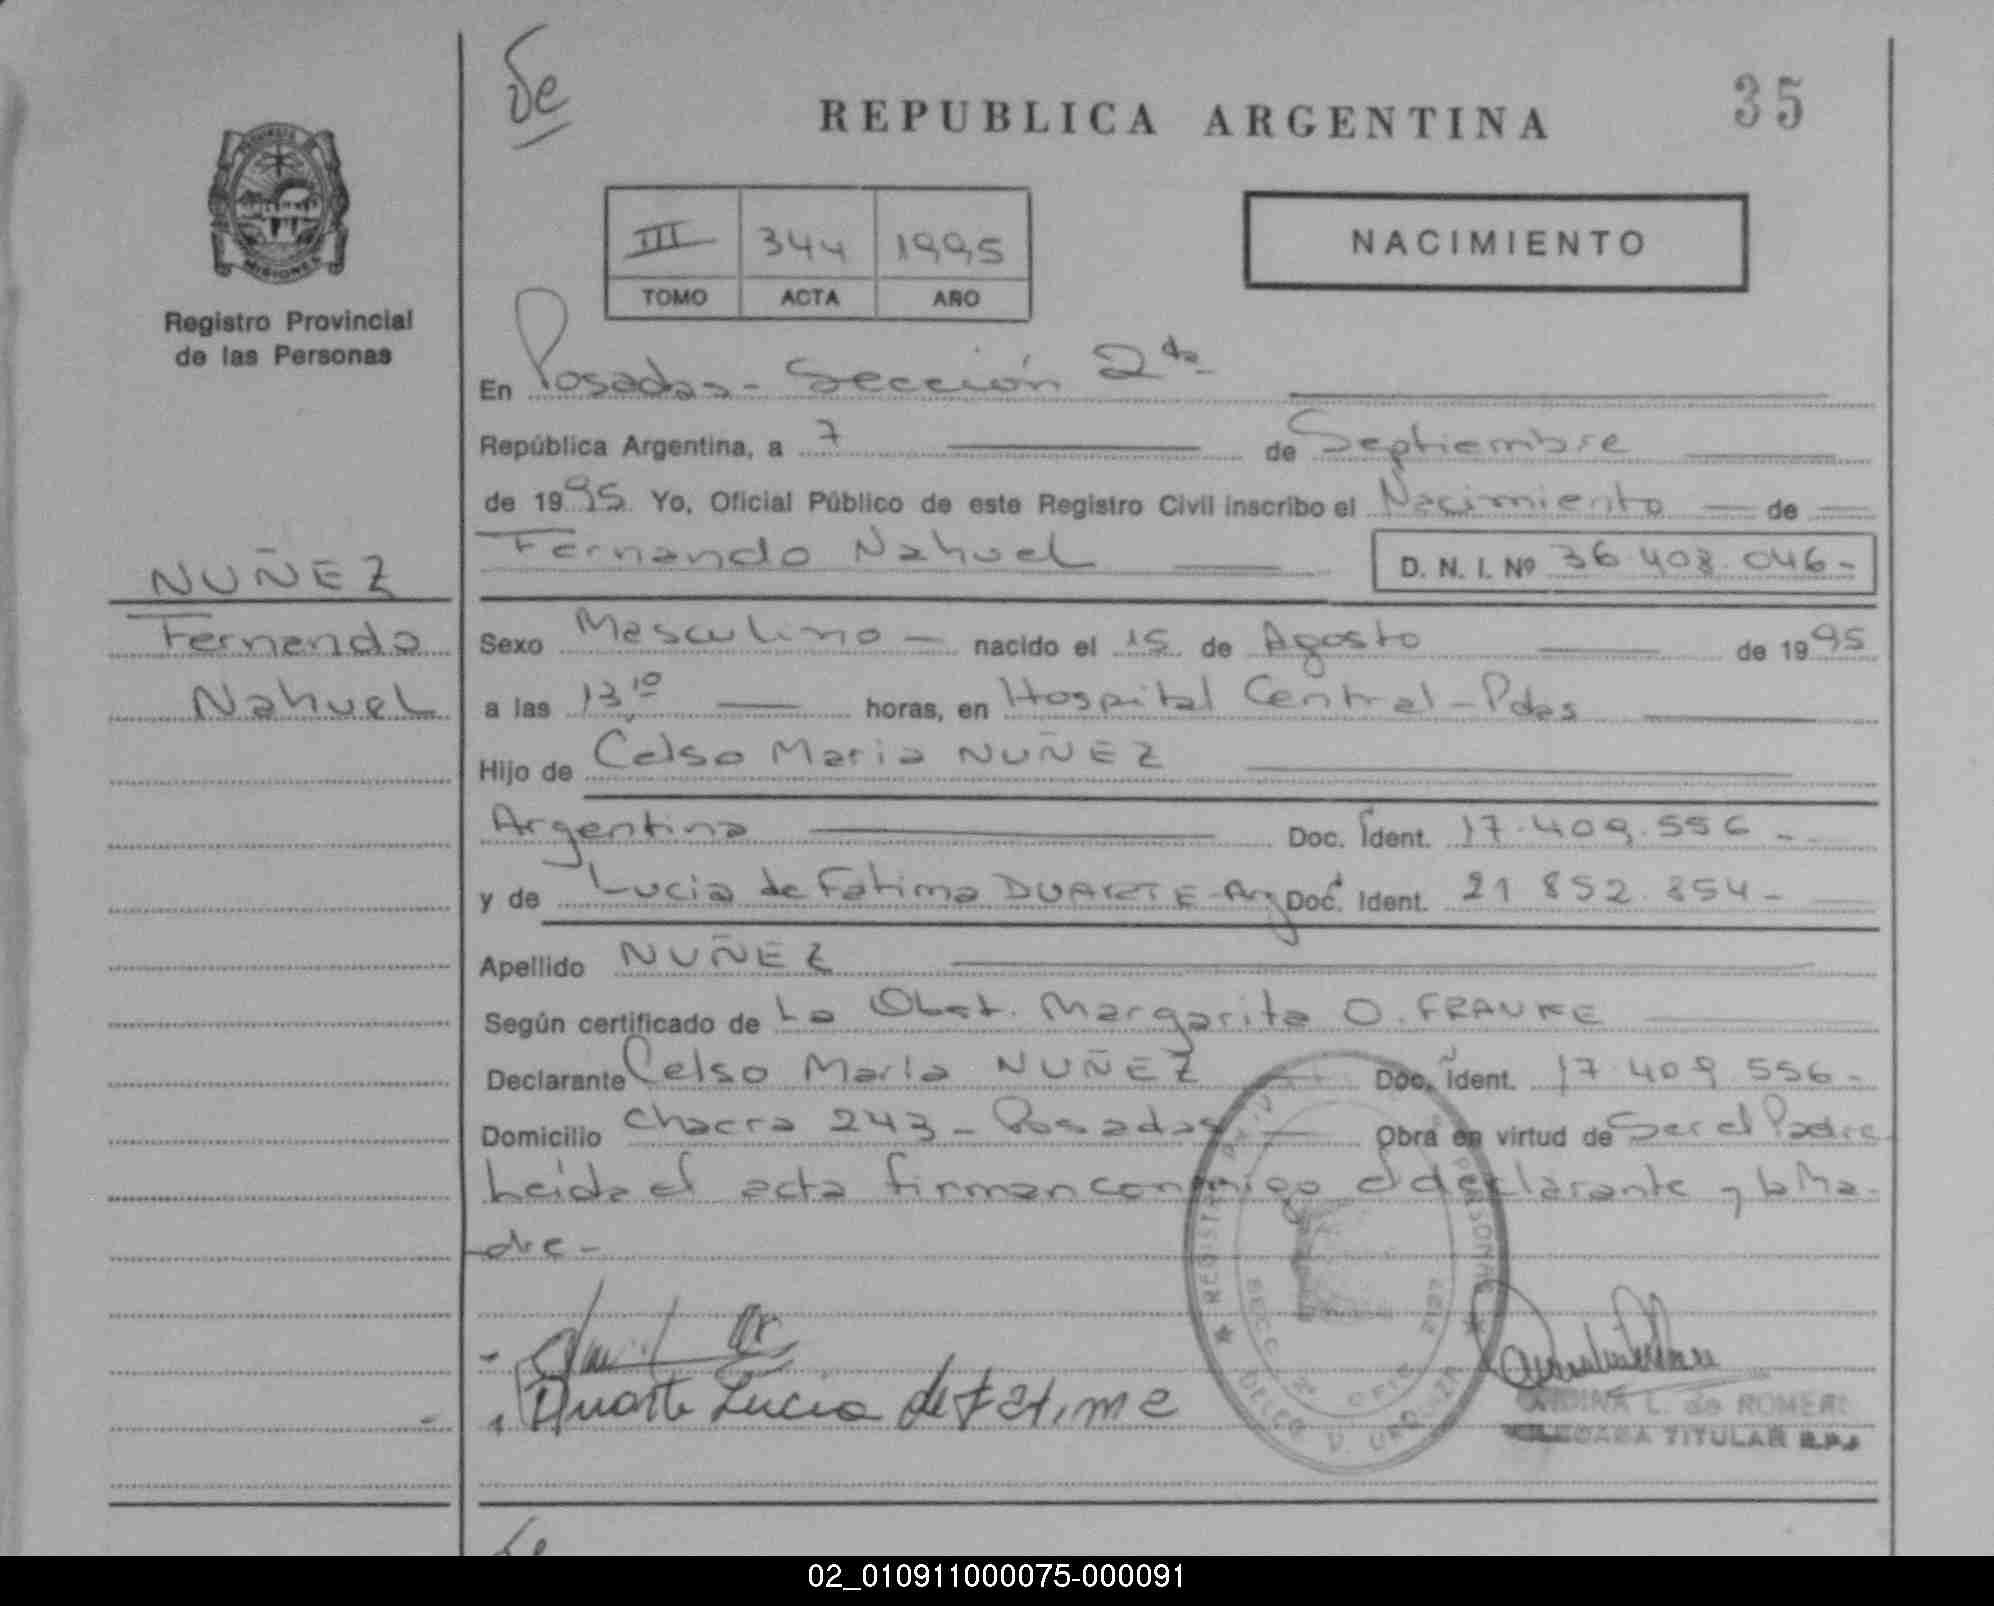 de
REPUBLICA ARGENTINA
35
III 344 1995
TOMO ACTA AÑO
NACIMIENTO
MISIONES
Registro Provincial
de las Personas
En Posadas - Sección 2da
República Argentina, a 7 de Septiembre
de 1995 Yo, Oficial Público de este Registro Civil inscribo el Nacimiento de
Fernando Nahuel D. N. I. Nº 36.408.046-
NUÑEZ
Fernando
Nahuel
Sexo Masculino nacido el 15 de Agosto de 1995
a las 13,10 horas, en Hospital Central - Pdas
Hijo de Celso Maria NUÑEZ
Argentino Doc. Ident. 17.409.556 -
y de Lucia de Fatima DUARTE - Arg Doc. Ident. 21 852.854 -
Apellido NUÑEZ
Según certificado de La Obst. Margarita O. FRANKE
Declarante Celso Maria NUÑEZ Doc. Ident. 17.409 556 -
Domicilio Chacra 243 - Posadas Obra en virtud de Ser el Padre
Leida el acta firman conmigo el declarante y la Ma-
dre -
Duarte Lucia de Fatima
L. de ROMERO
DELEGADA TITULAR R.P.
02_010911000075-000091